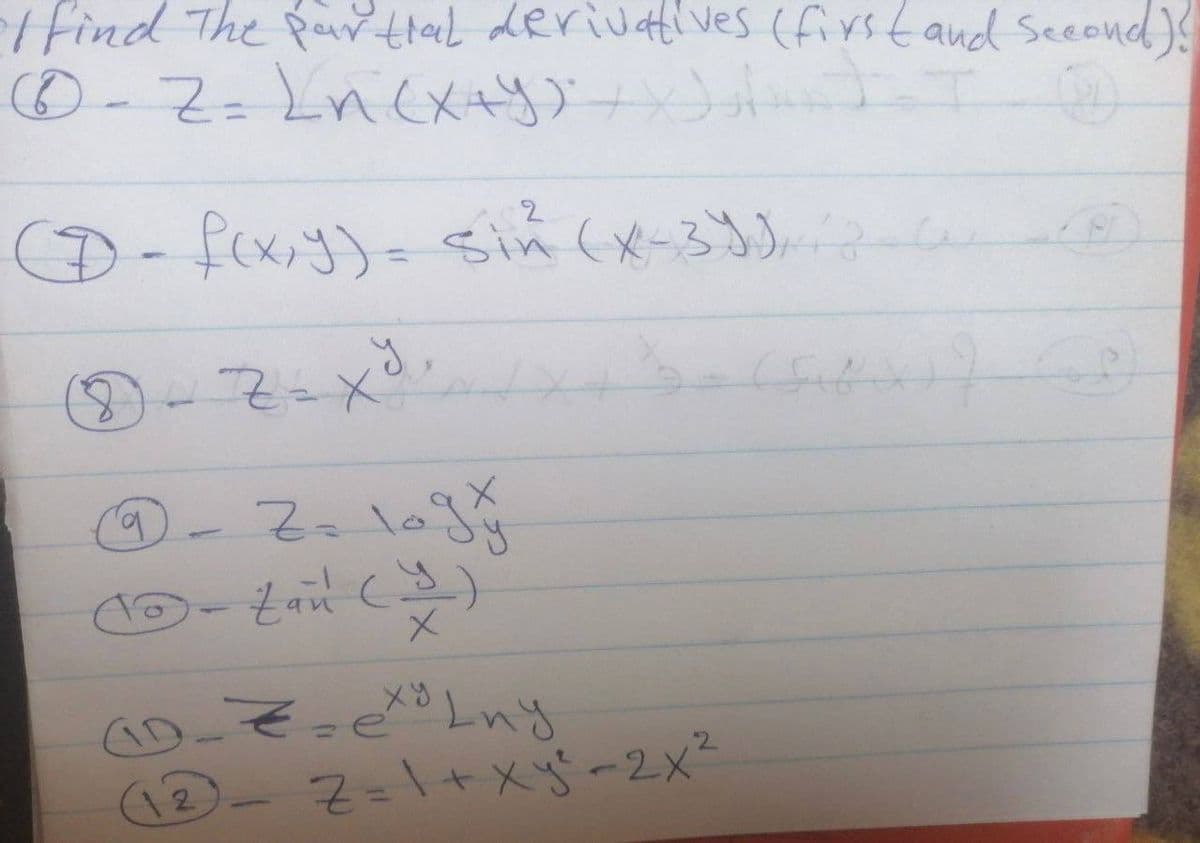 Find The partial derivatives (first and Second)?
⑥ - Z = Ln(x+y)
⑦ - f(x,y) = sin² (x-3y)
⑧ - Z = x^y
⑨ - Z = log_y^x
⑩ - tan⁻¹ (y/x)
⑪ - Z = e^xy Lny
⑫ - Z = 1 + xy² - 2x²